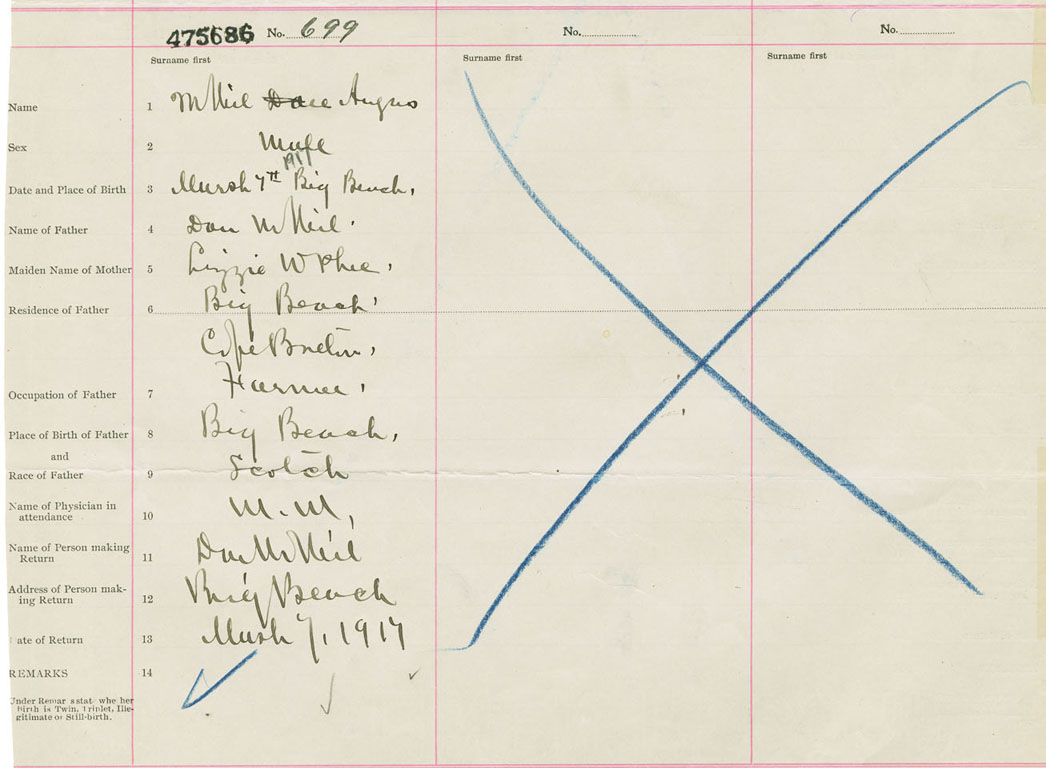 475686 No. 699
No.
No.
Surname first
Surname first
Surname first
Name 1 McNeil Angus
Sex 2 Male
1917
Date and Place of Birth 3 Marsh 7th Big Beach,
Name of Father 4 Dan McNeil
Maiden Name of Mother 5 Lizzie McPhee,
Residence of Father 6 Big Beach
Cape Breton,
Occupation of Father 7 Farmer
Place of Birth of Father 8 Big Beach,
and
Race of Father 9 Scotch
Name of Physician in
attendance 10 M. M,
Name of Person making
Return 11 Dan McNeil
Address of Person mak-
ing Return 12 Big Beach
ate of Return 13 Marsh 7, 1917
REMARKS 14
Under Remar s stat whe her
Birth is Twin, Triplet, Ille-
gitimate or Still-birth.